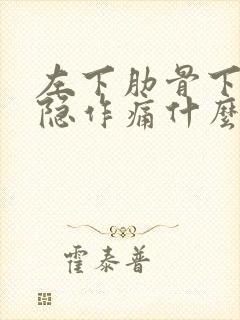 左下肋骨下
隐作痛什麼
霍泰普